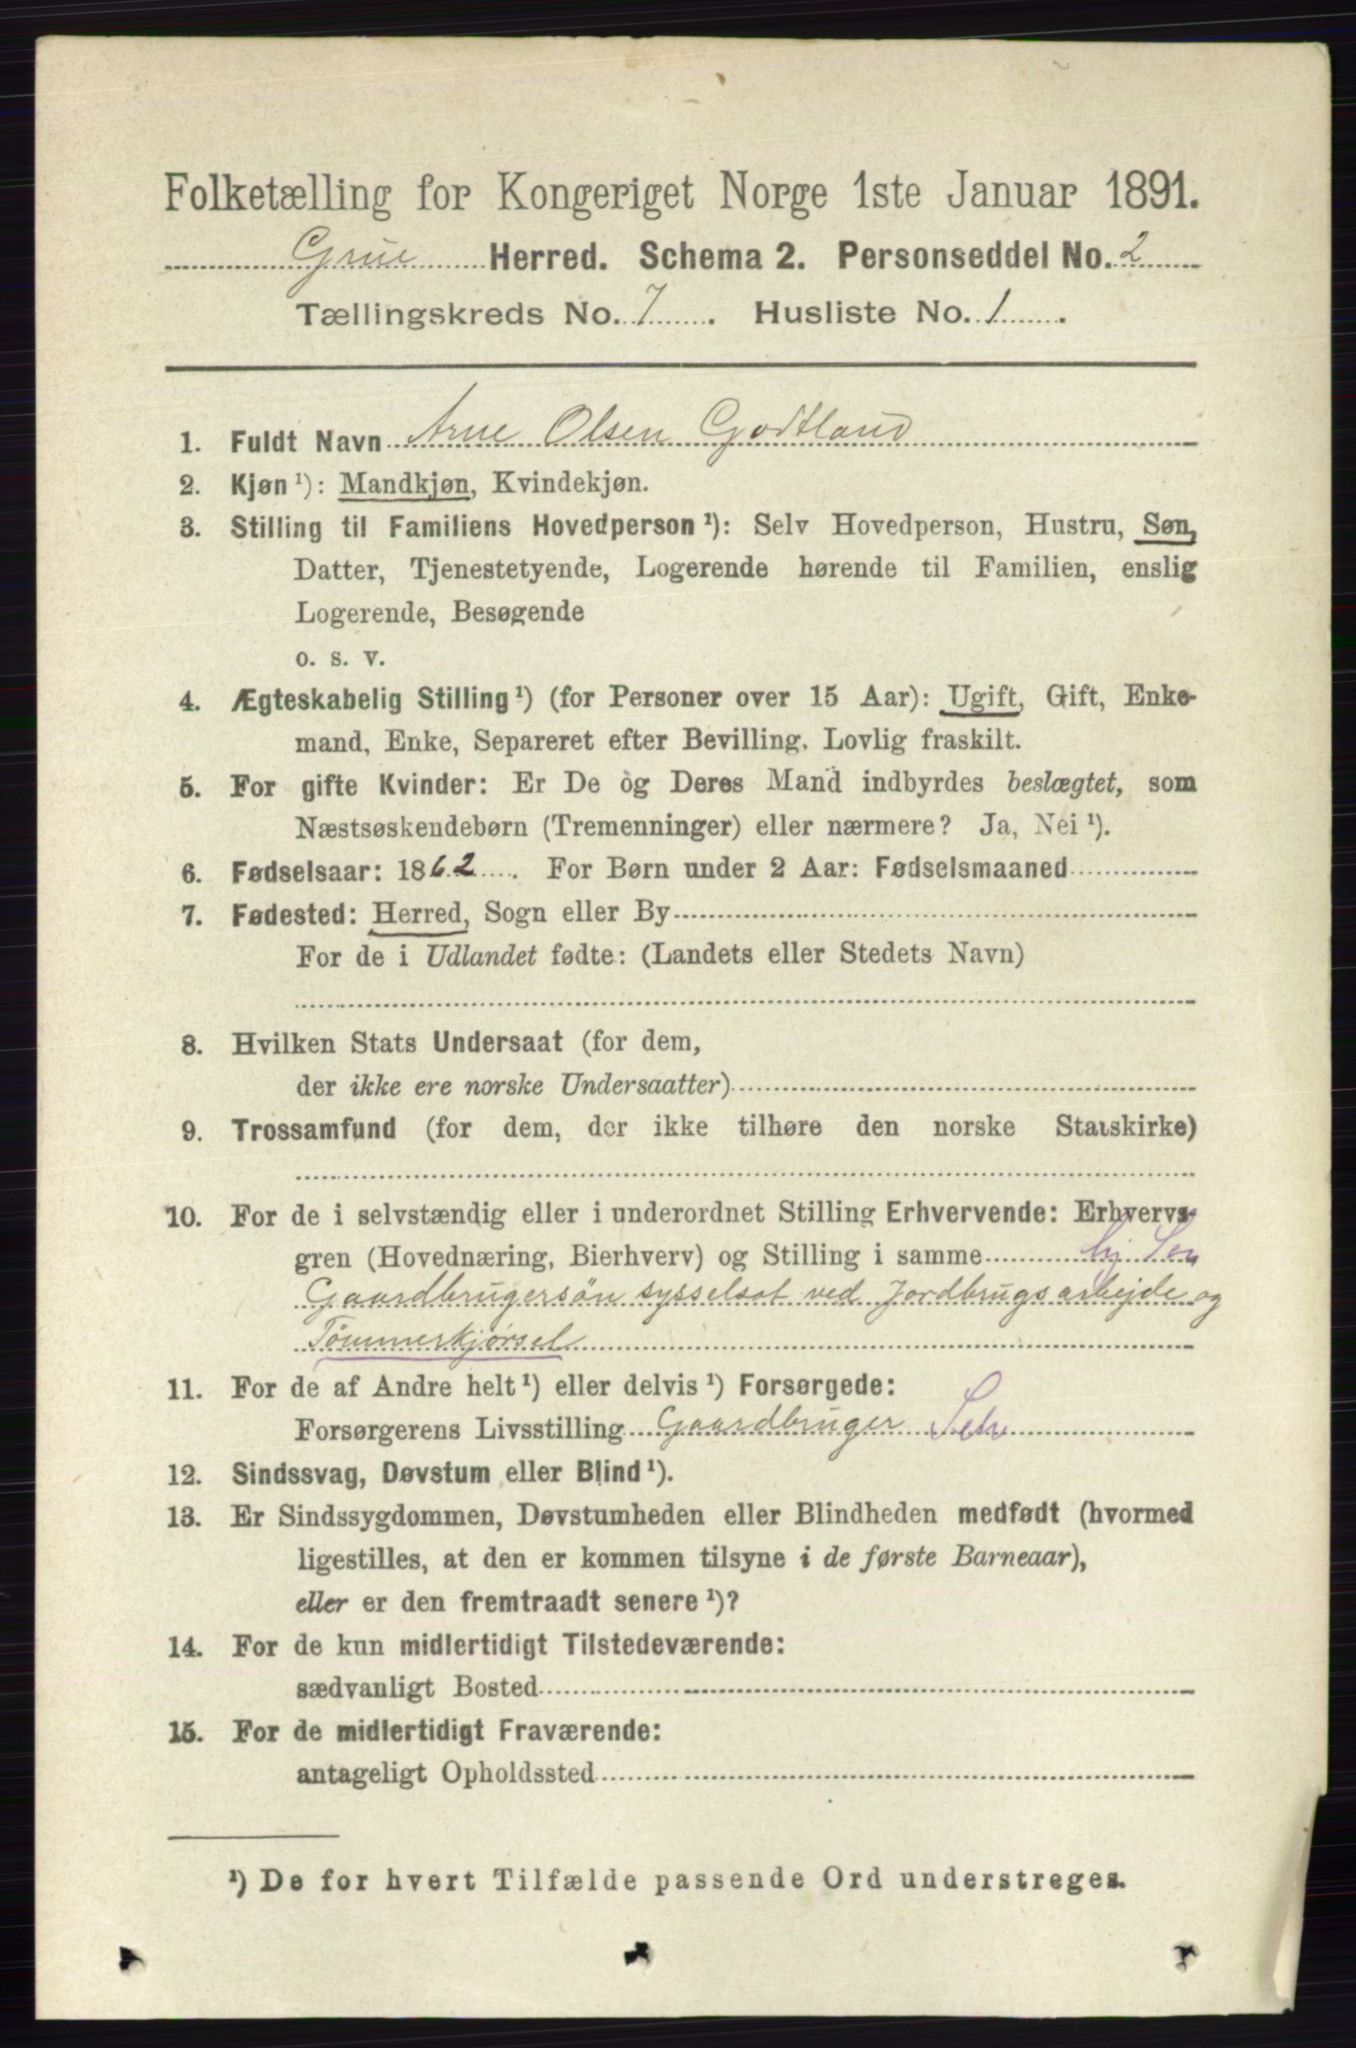 Folketælling for Kongeriget Norge 1ste Januar 1891.
Grue Herred. Schema 2. Personseddel No. 2
Tællingskreds No. 7. Husliste No. 1.
1. Fuldt Navn Arne Olsen Godtland
2. Kjøn ¹): Mandkjøn, Kvindekjøn.
3. Stilling til Familiens Hovedperson ¹): Selv Hovedperson, Hustru, Søn,
Datter, Tjenestetyende, Logerende hørende til Familien, enslig
Logerende, Besøgende
o. s. v.
4. Ægteskabelig Stilling ¹) (for Personer over 15 Aar): Ugift, Gift, Enke-
mand, Enke, Separeret efter Bevilling. Lovlig fraskilt.
5. For gifte Kvinder: Er De og Deres Mand indbyrdes beslægtet, som
Næstsøskendebørn (Tremenninger) eller nærmere? Ja, Nei ¹).
6. Fødselsaar: 1862. For Børn under 2 Aar: Fødselsmaaned
7. Fødested: Herred, Sogn eller By
For de i Udlandet fødte: (Landets eller Stedets Navn)
8. Hvilken Stats Undersaat (for dem,
der ikke ere norske Undersaatter)
9. Trossamfund (for dem, der ikke tilhøre den norske Statskirke)
10. For de i selvstændig eller i underordnet Stilling Erhvervende: Erhvervs-
gren (Hovednæring, Bierhverv) og Stilling i samme
Gaardbrugersön sysselsat ved Jordbrugsarbejde og
Tömmerkjörsel
11. For de af Andre helt ¹) eller delvis ¹) Forsørgede:
Forsørgerens Livsstilling Gaardbruger
12. Sindssvag, Døvstum eller Blind ¹).
13. Er Sindssygdommen, Døvstumheden eller Blindheden medfødt (hvormed
ligestilles, at den er kommen tilsyne i de første Barneaar),
eller er den fremtraadt senere ¹)?
14. For de kun midlertidigt Tilstedeværende:
sædvanligt Bosted
15. For de midlertidigt Fraværende:
antageligt Opholdssted
¹) De for hvert Tilfælde passende Ord understreges.